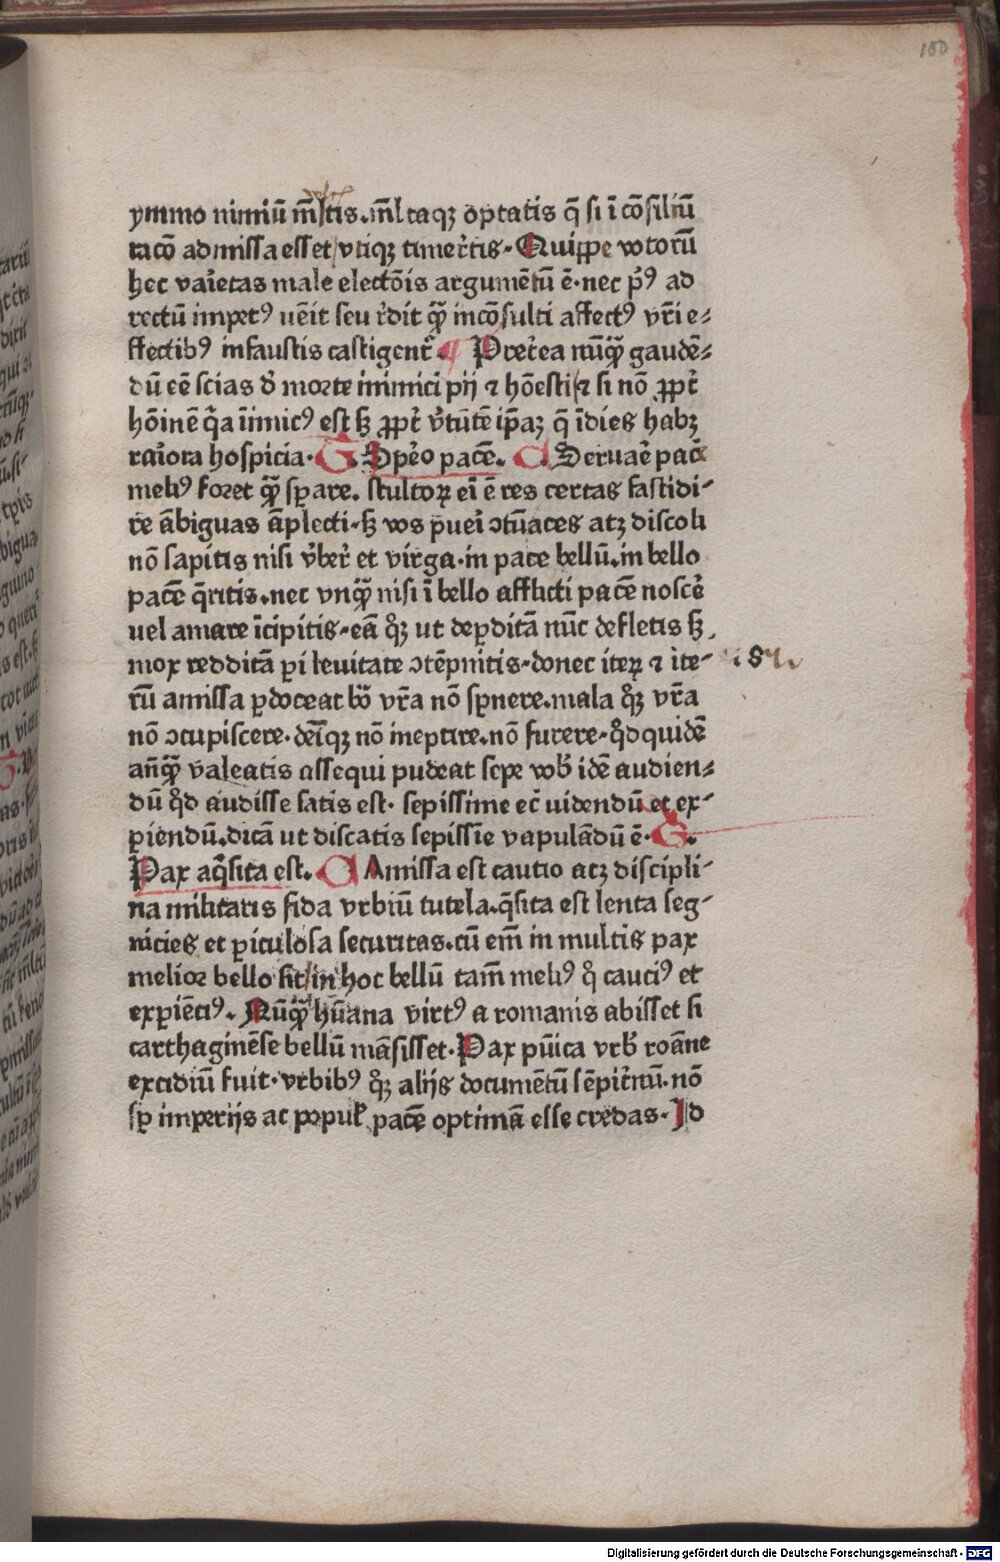 180
ymmo nimiū ml̄tis. ml̄taqꝫ optatis q̄ si ī cōsiliū
racō admissa esset/vtiqꝫ timer̄tis. Quippe votorū
hec vaīetas male electōis argumētū ē. nec pꝰ ad
rectū impetꝰ uēit seu r̄dit qꝫ̄ incōsulti affectꝰ vr̄i e⸗
ffectibꝰ infaustis castigentr̄. ¶ Pretēa nūqꝫ̄ gaudē⸗
dū eē scias d̄ morte inimici pij ⁊ hōesti/⁊ si nō ꝓpt̄
hōinē q̄a īimicꝰ est sꝫ ꝓpt̄ v̄tūtē ip̄aꝫ q̄ īdies habꝫ
raīora hospicia. G. Speo pacē. ¶ Seruaē pacē
meliꝰ foret qꝫ̄ sꝑare. stultoꝝ eī ē res certas fastidi⸗
re ābiguas āplecti. sꝫ vos pueī ↄtūaces atꝫ discoli
nō sapitis nisi v̄ber̄ et virga. in pace bellū. in bello
pacē q̄ritis. nec vnqꝫ̄ nisi ī bello afflicti pacē noscē
uel amare īcipitis. eā qꝫ̄ ut deꝑditā nūc defletis sꝫ
mox redditā ꝑi leuitate ↄtēpnitis. donec iteꝝ ⁊ ite⸗
rū amissa ꝑdoceat bō vr̄a nō sꝑnere. mala qꝫ̄ vr̄a
nō ↄcupiscere. deīqꝫ nō ineptire. nō furere. qd̄ quidē
an̄qꝫ̄ valeatis assequi pudeat sepe vob̄ idē audien⸗
dū qd̄ audisse satis est. sepissime ec̄ uidendū et ex⸗
ꝑiendū. dicā ut discatis sepissīe vapulādū ē. G.
Pax aq̄sita est. ¶ Amissa est cautio atꝫ discipli⸗
na militaris fida vrbiū tutela. q̄sita est lenta seg⸗
nicies et ꝑiculosa securitas. cū em̄ in multis pax
melior bello sit/in hoc bellū tam̄ meliꝰ q̄ cauciꝰ et
exꝑiēciꝰ. Nūqꝫ̄ hūana virtꝰ a romanis abisset si
carthaginēse bellū māsisset. Pax pūica vrb̄ roāne
excidiū fuit. vrbibꝰ qꝫ̄ alijs documētū sēpit̄nū. nō
sꝑ imperijs ac popul̄ pacē optimā esse credas. Id
Digitalisierung gefördert durch die Deutsche Forschungsgemeinschaft - DFG